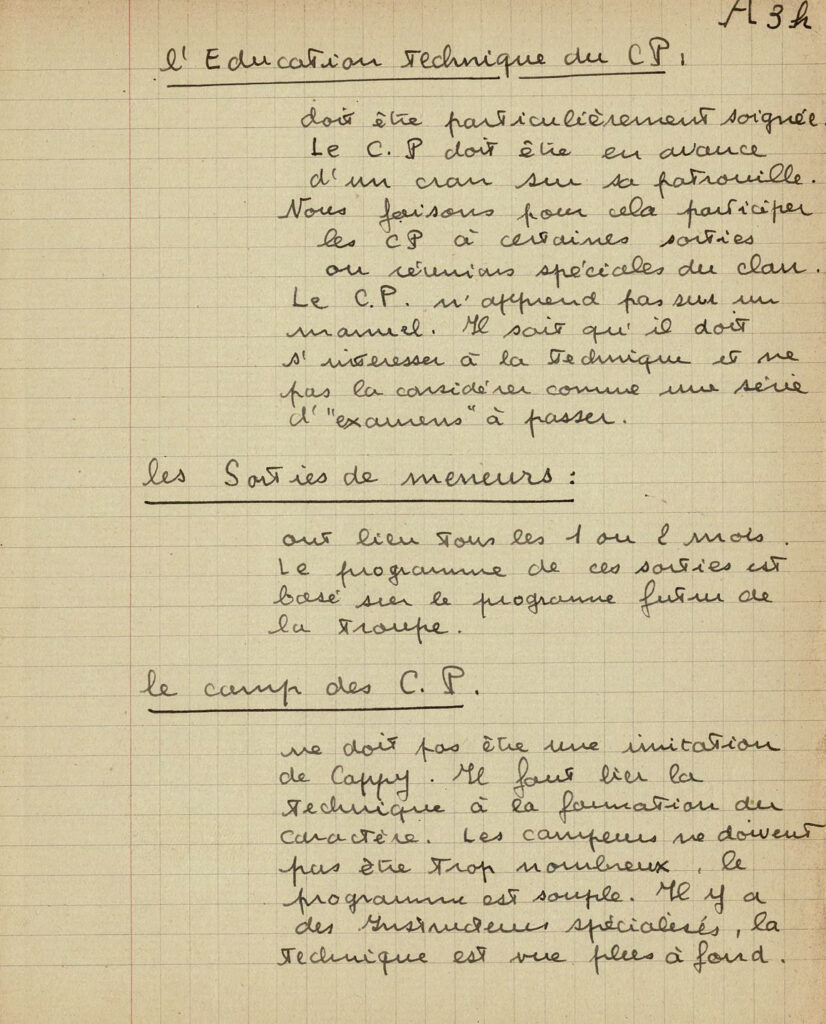 A 3h
l'Education technique du CP:
doit être particulièrement soignée.
Le C.P doit être en avance
d'un cran sur sa patrouille.
Nous faisons pour cela participer
les CP à certaines sorties
ou réunions spéciales du clan.
Le C.P. n'apprend pas sur un
manuel. Il sait qu'il doit
s'intéresser à la technique et ne
pas la considérer comme une série
d'"examens" à passer.
les Sorties de meneurs:
ont lieu tous les 1 ou 2 mois.
Le programme de ces sorties est
basé sur le programme futur de
la troupe.
le camp des C.P.
ne doit pas être une imitation
de Cappy. Il faut lier la
technique à la formation du
caractère. Les campeurs ne doivent
pas être trop nombreux, le
programme est souple. Il y a
des Instructeurs spécialisés, la
technique est vue plus à fond.